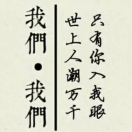 我們•我們
世上人潮萬千
只有你入我眼